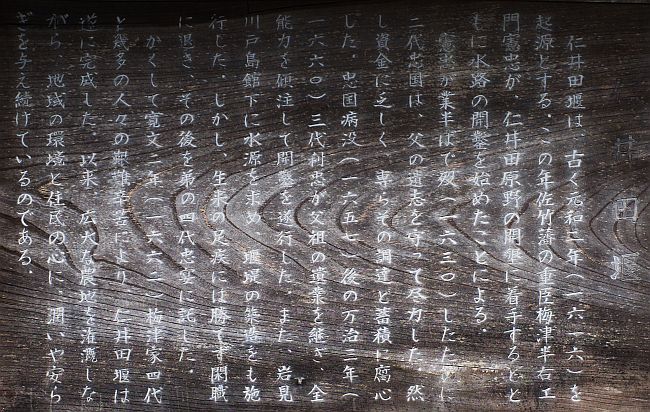 井田堰
仁井田堰は、古く元和二年(一六一六)を
起源とする。この年佐竹藩の重臣梅津半右エ
門憲忠が、仁井田原野の開墾に着手するとと
もに水路の開鑿を始めたことによる。
憲忠が業半ばで歿(一六三〇)したために
二代忠国は、父の遺志を守って尽力した。然
し資金に乏しく、専らその調達と蓄積に腐心
した。忠国病没(一六五七)後の万治三年(
一六六〇)三代利忠が父祖の遺業を継ぎ、全
能力を傾注して開鑿を遂行した。また、岩見
川戸島館下に水源を求め、堰環の築造をも施
行した。しかし、生来の足疾には勝てず閑職
に退き、その後を弟の四代忠宴に託した。
かくして寛文二年(一六六二)梅津家四代
と幾多の人々の艱難辛苦により、仁井田堰は
遂に完成した。以来、広大な農地を灌漑しな
がら、地域の環境と住民の心に、潤いや安ら
ぎを与え続けているのである。